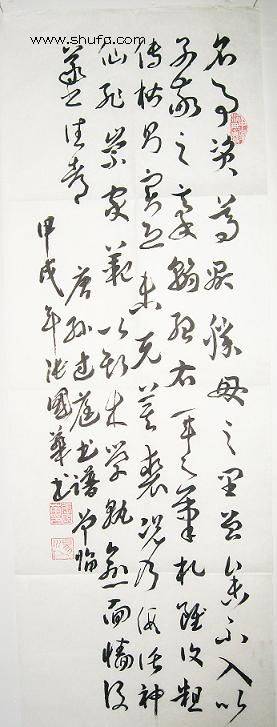 www.shufa.com
名事資尊顯勝母之里曾參不入以
子敬之豪翰紹右軍之筆札雖復粗
傳楷則實恐未克箕裘況乃假託神
仙恥崇家範以斯成學孰愈面墻後
羲之往都
唐孫過庭書譜節臨
甲戌年張國華书